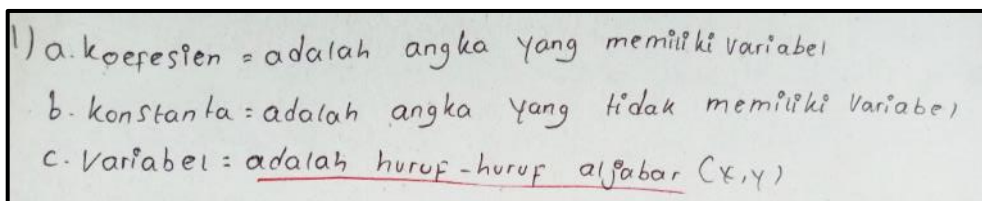 1) a. koefesien = adalah angka yang memiliki variabel
b. konstanta = adalah angka yang tidak memiliki variabel
c. Variabel = adalah huruf-huruf aljabar (x,y)